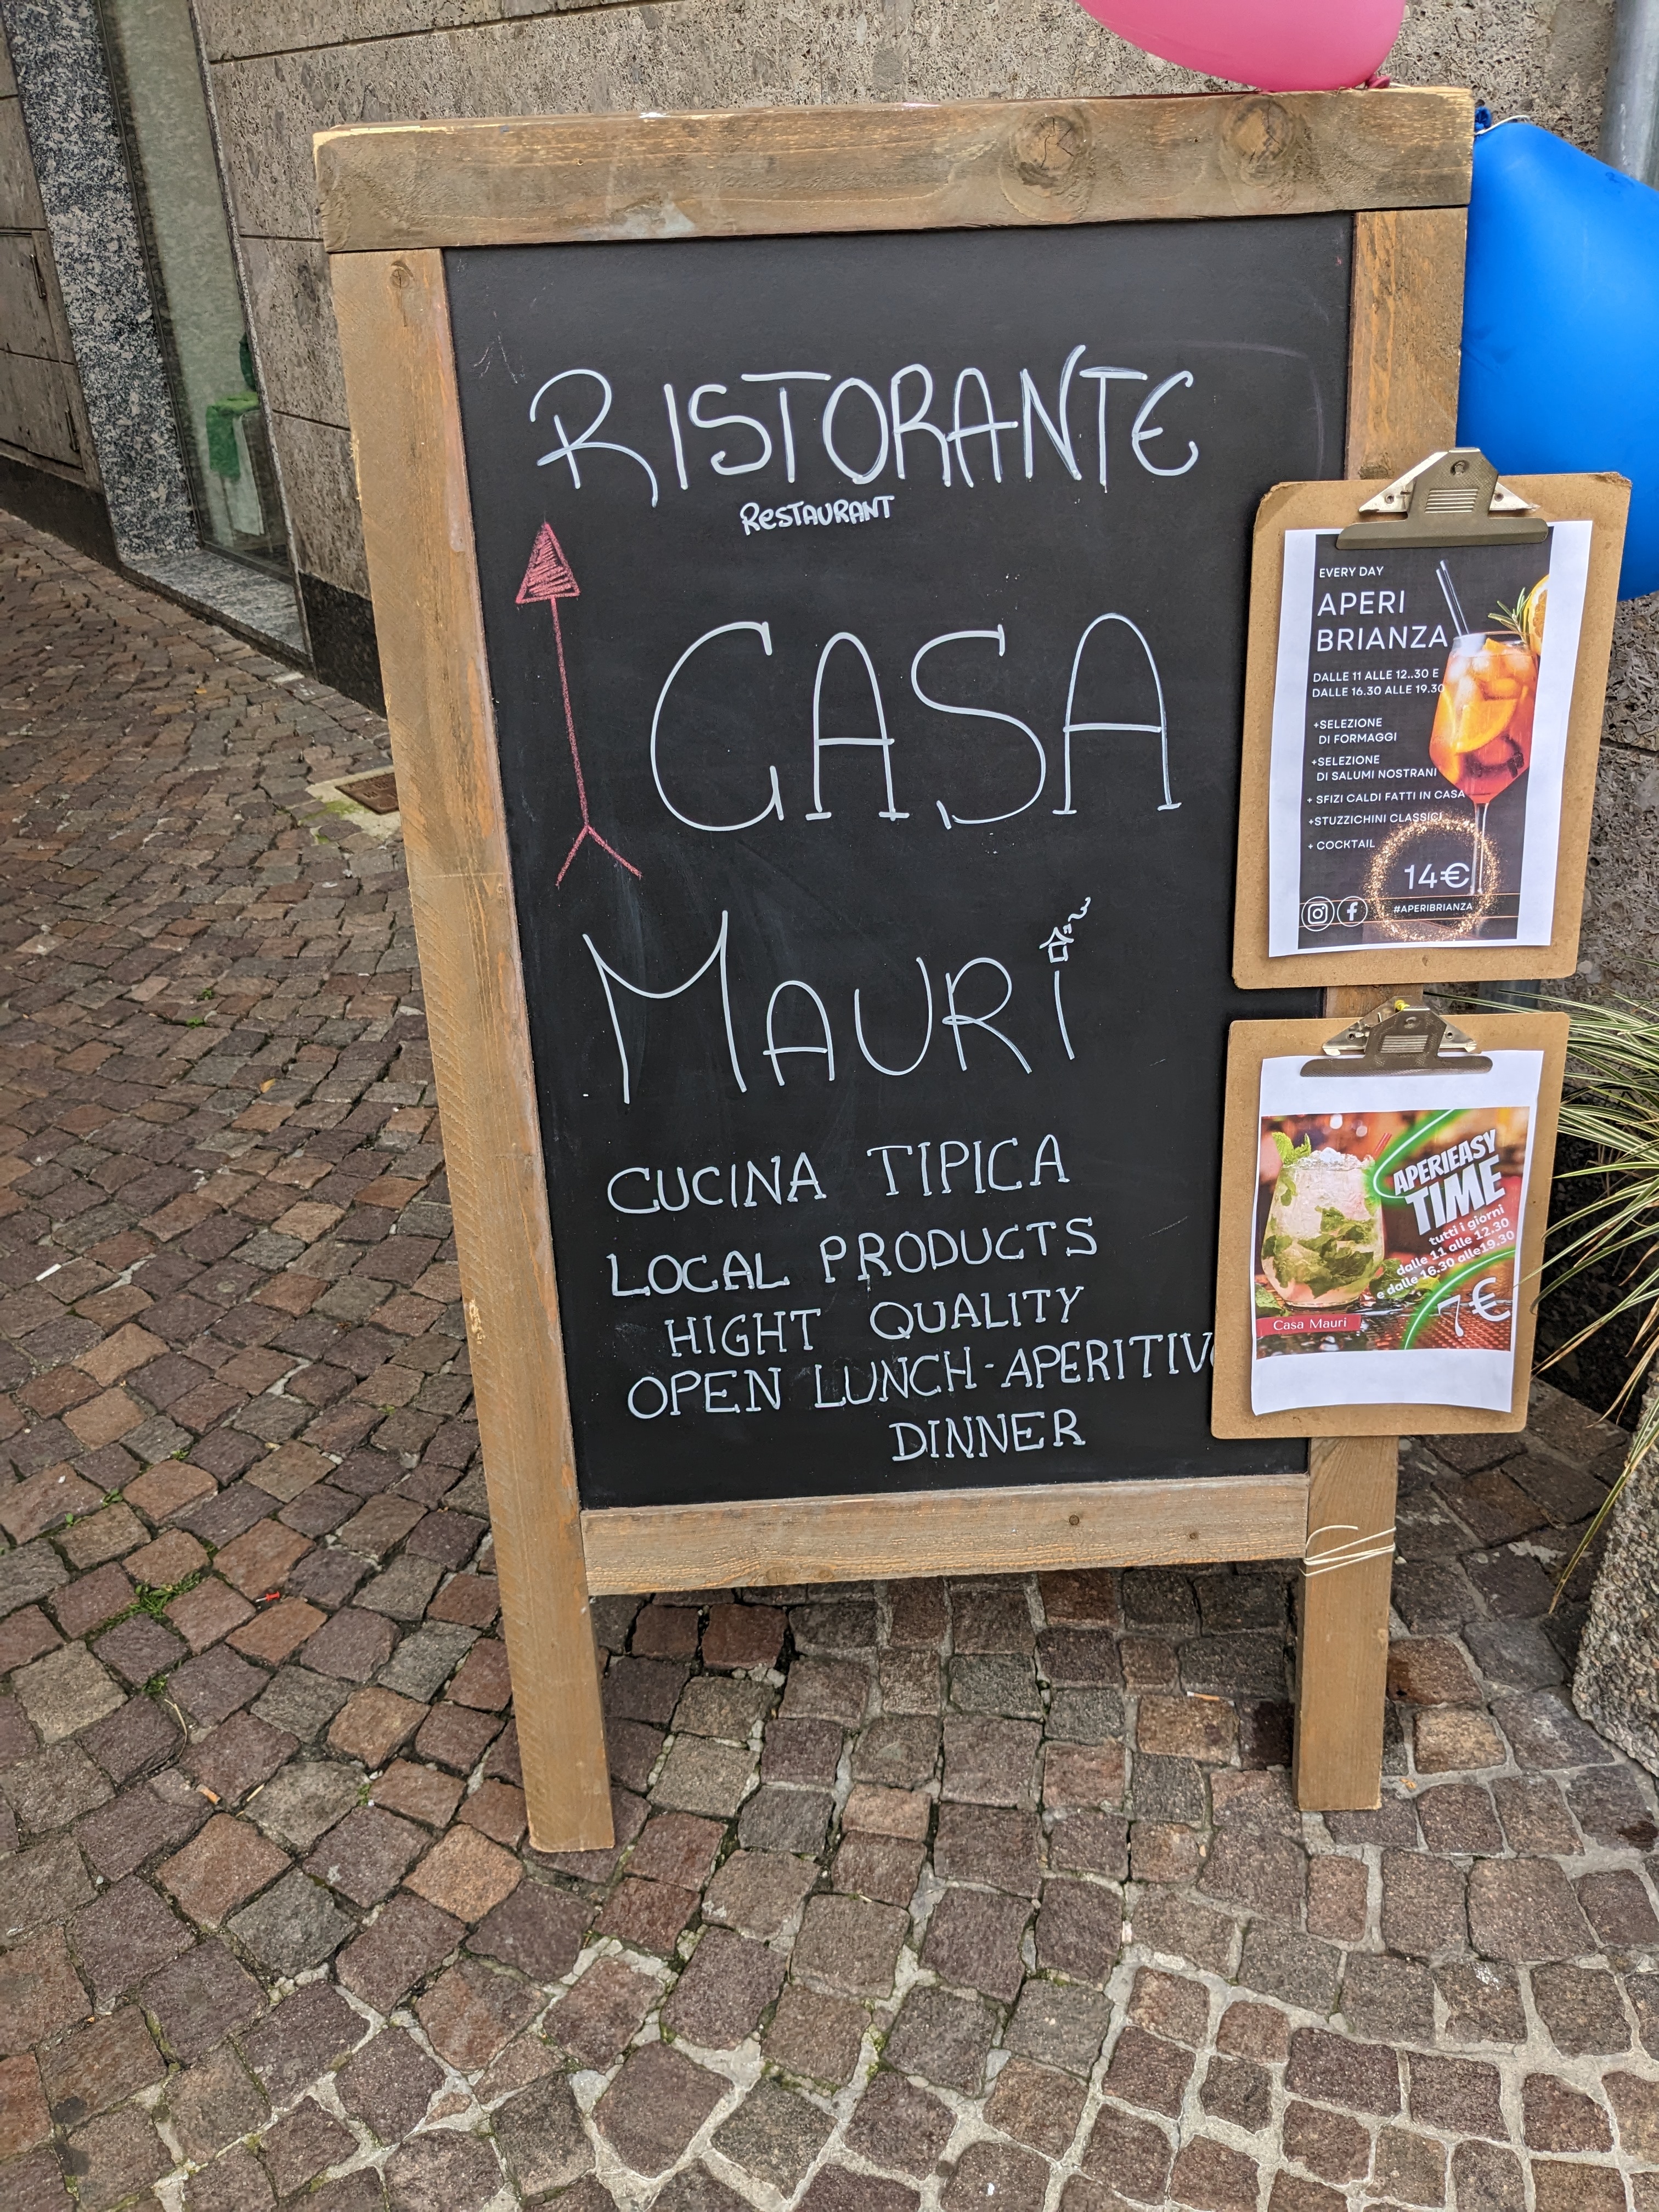 RISTORANTE
RESTAURANT
CASA
MAURI
CUCINA TIPICA
LOCAL PRODUCTS
HIGHT QUALITY
OPEN LUNCH-APERITIVO
DINNER
EVERY DAY
APERI
BRIANZA
DALLE 11 ALLE 12..30 E
DALLE 16.30 ALLE 19.30
+SELEZIONE
DI FORMAGGI
+SELEZIONE
DI SALUMI NOSTRANI
+ SFIZI CALDI FATTI IN CASA
+STUZZICHINI CLASSICI
+ COCKTAIL
14€
#APERIBRIANZA
APERIEASY
TIME
tutti i giorni
dalle 11 alle 12.30
e dalle 16.30 alle19.30
7€
Casa Mauri